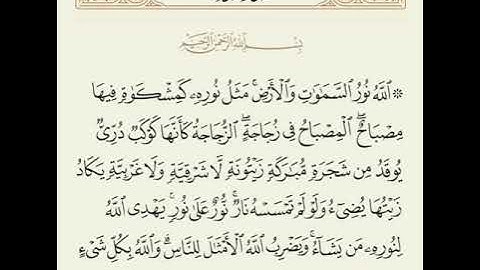 بِسْمِ اللَّهِ الرَّحْمَٰنِ الرَّحِيمِ
۞ ٱللَّهُ نُورُ ٱلسَّمَٰوَٰتِ وَٱلْأَرْضِ ۚ مَثَلُ نُورِهِۦ كَمِشْكَوٰةٍ فِيهَا
مِصْبَاحٌ ۖ ٱلْمِصْبَاحُ فِى زُجَاجَةٍ ۖ ٱلزُّجَاجَةُ كَأَنَّهَا كَوْكَبٌ دُرِّىٌّ
يُوقَدُ مِن شَجَرَةٍ مُّبَٰرَكَةٍ زَيْتُونَةٍ لَّا شَرْقِيَّةٍ وَلَا غَرْبِيَّةٍ يَكَادُ
زَيْتُهَا يُضِىٓءُ وَلَوْ لَمْ تَمْسَسْهُ نَارٌ ۚ نُّورٌ عَلَىٰ نُورٍ ۗ يَهْدِى ٱللَّهُ
لِنُورِهِۦ مَن يَشَآءُ ۚ وَيَضْرِبُ ٱللَّهُ ٱلْأَمْثَٰلَ لِلنَّاسِ ۗ وَٱللَّهُ بِكُلِّ شَىْءٍ